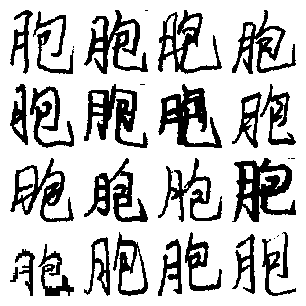 胞胞胞胞
胞胞胞胞
胞胞胞胞
胞胞胞胞